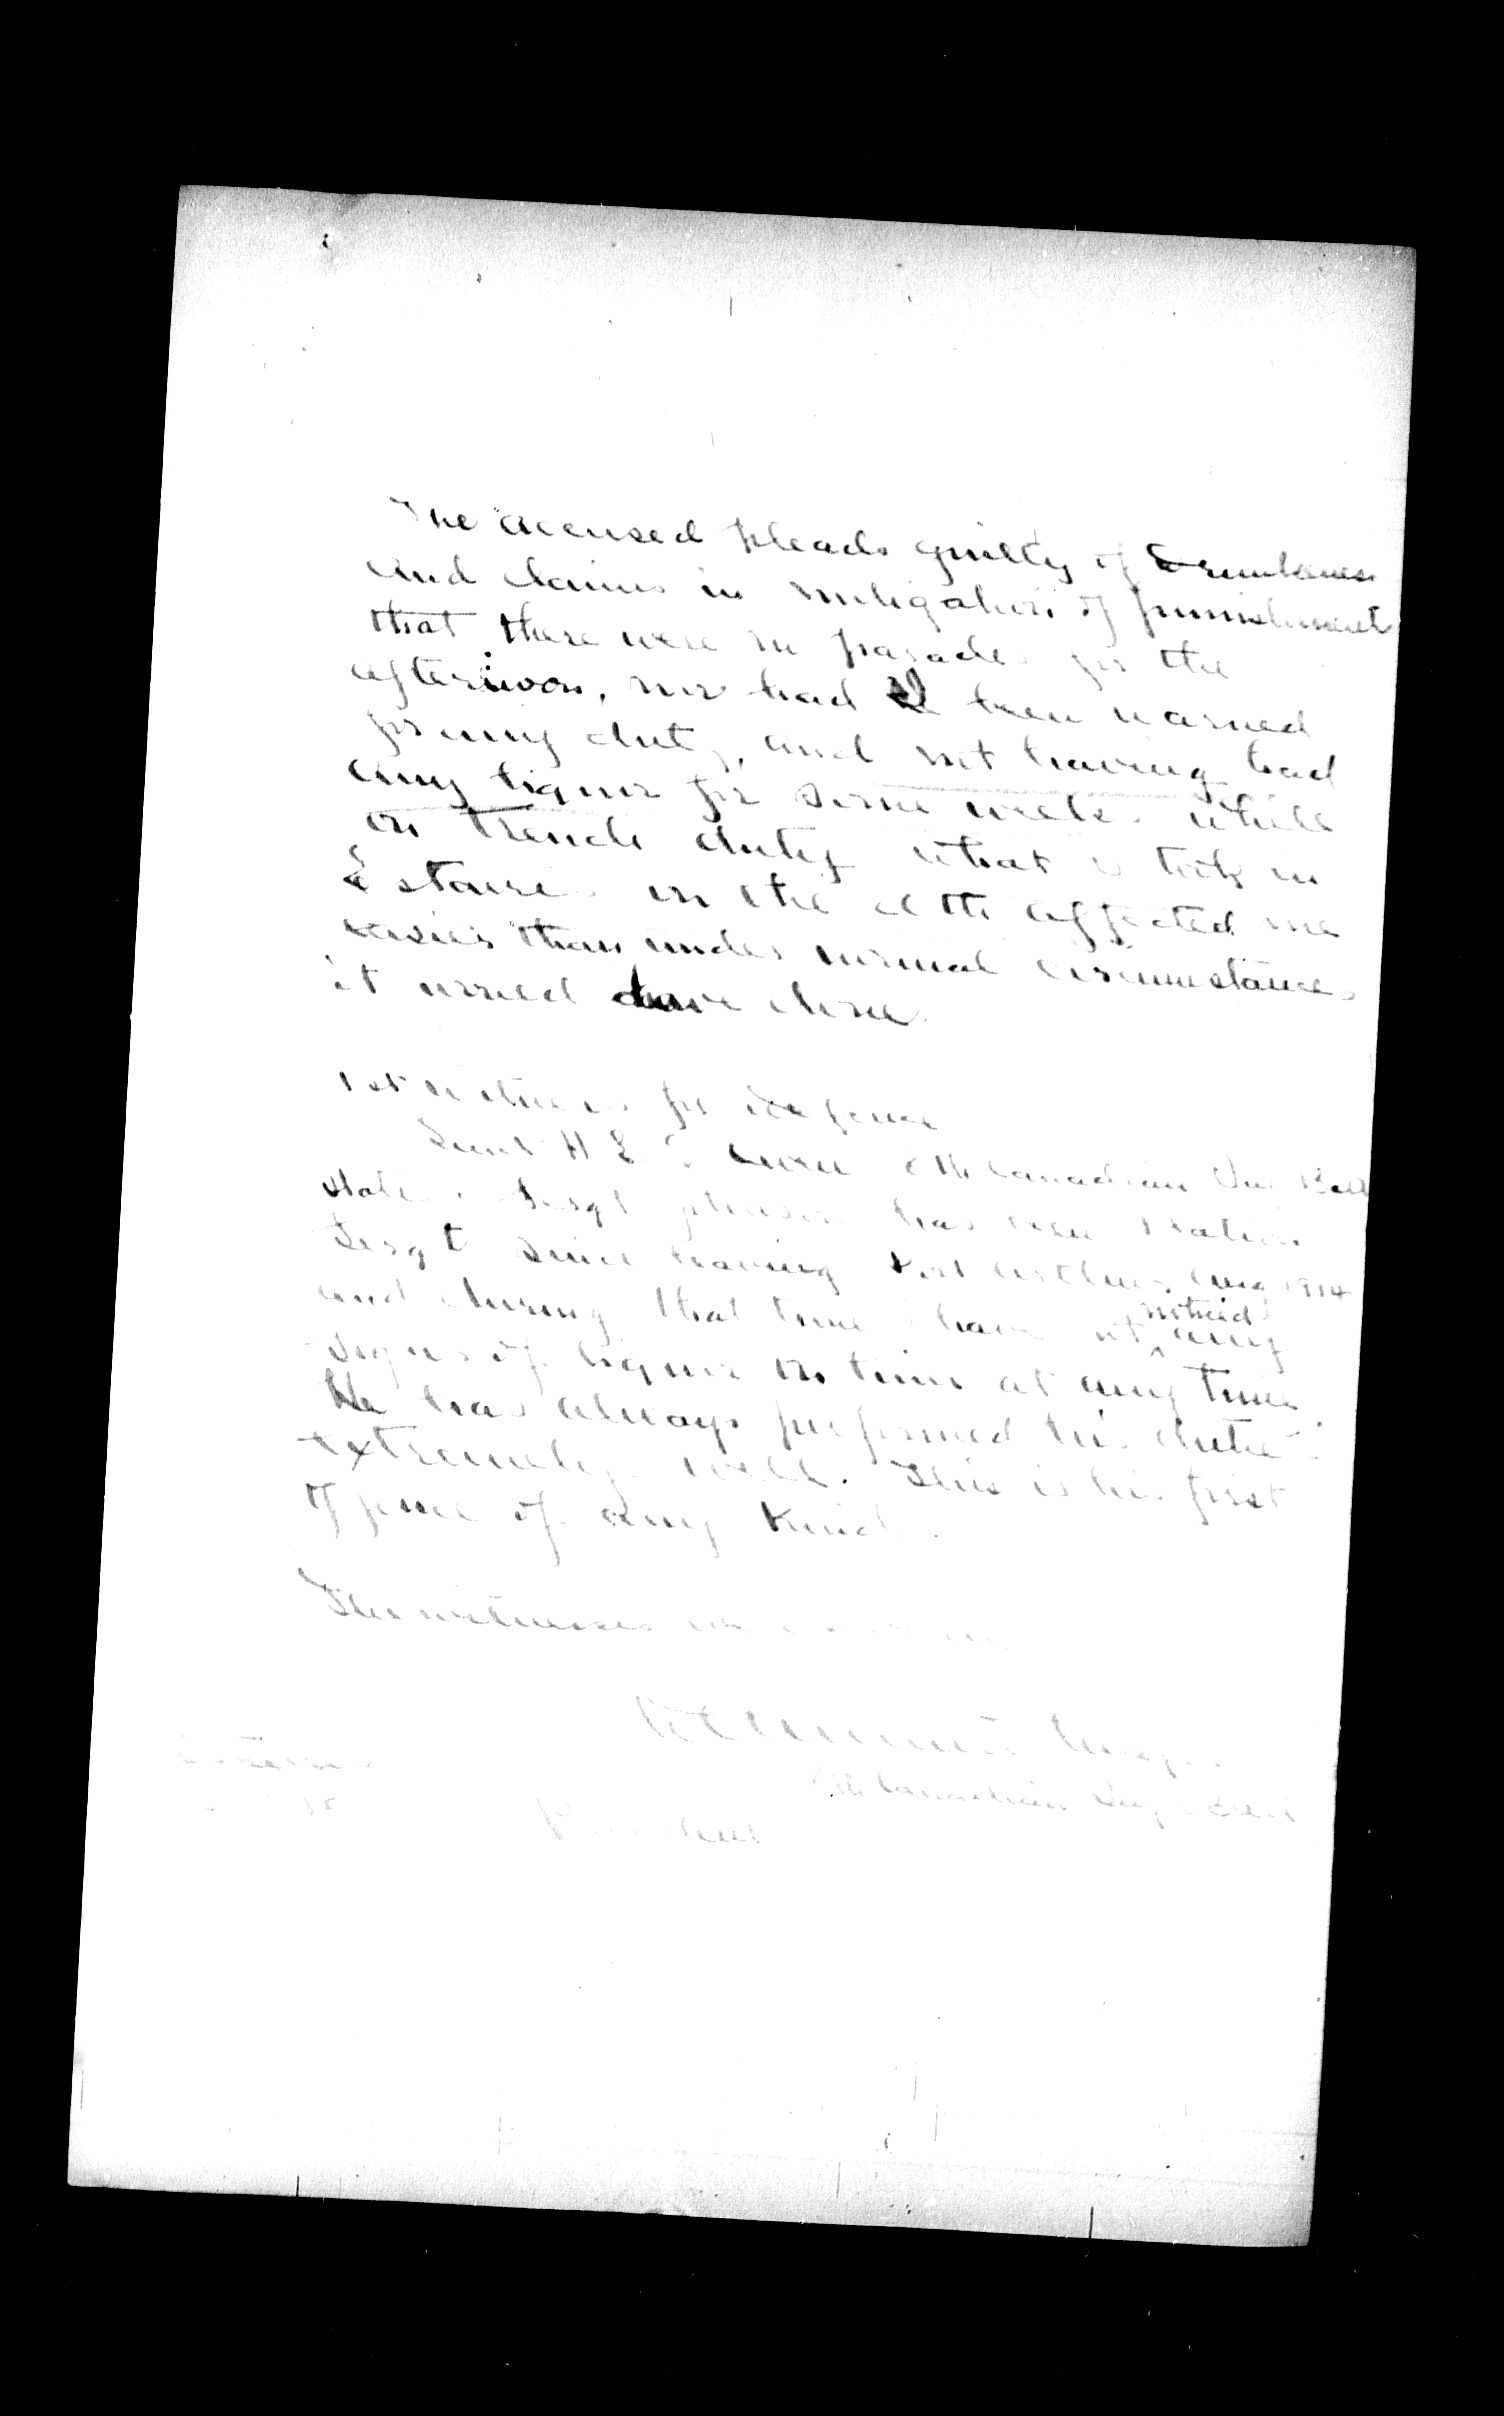 The accused pleads guilty of Drunkeness
and claims in mitigation of punishment
that there were no parades for the
afternoon, nor had I been warned
for any duty, and not having had
any liquor for some weeks while
on Trench duty what I took in
Estaires on the affected me
easier than under normal circumstances
it would have done.
1st witness for defence
Lieut H E Canadian Inf Batt
states. Sergt has been
Sergt since leaving Port Arthur, Aug 1914
and during that time I have not noticed any
signs of liquor on him at any time
He has always performed his duties
extremely well. This is his first
offence of any kind.
The witnesses
Major
Canadian Inf Batt
Estaires
President